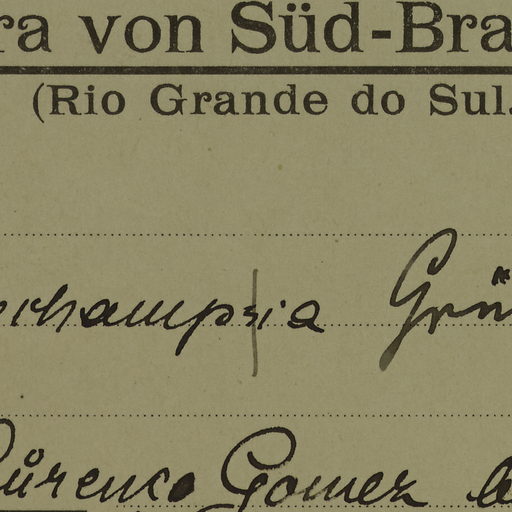 ra von Süd-Bra
(Rio Grande do Sul.
schampsia Grü
Gomez